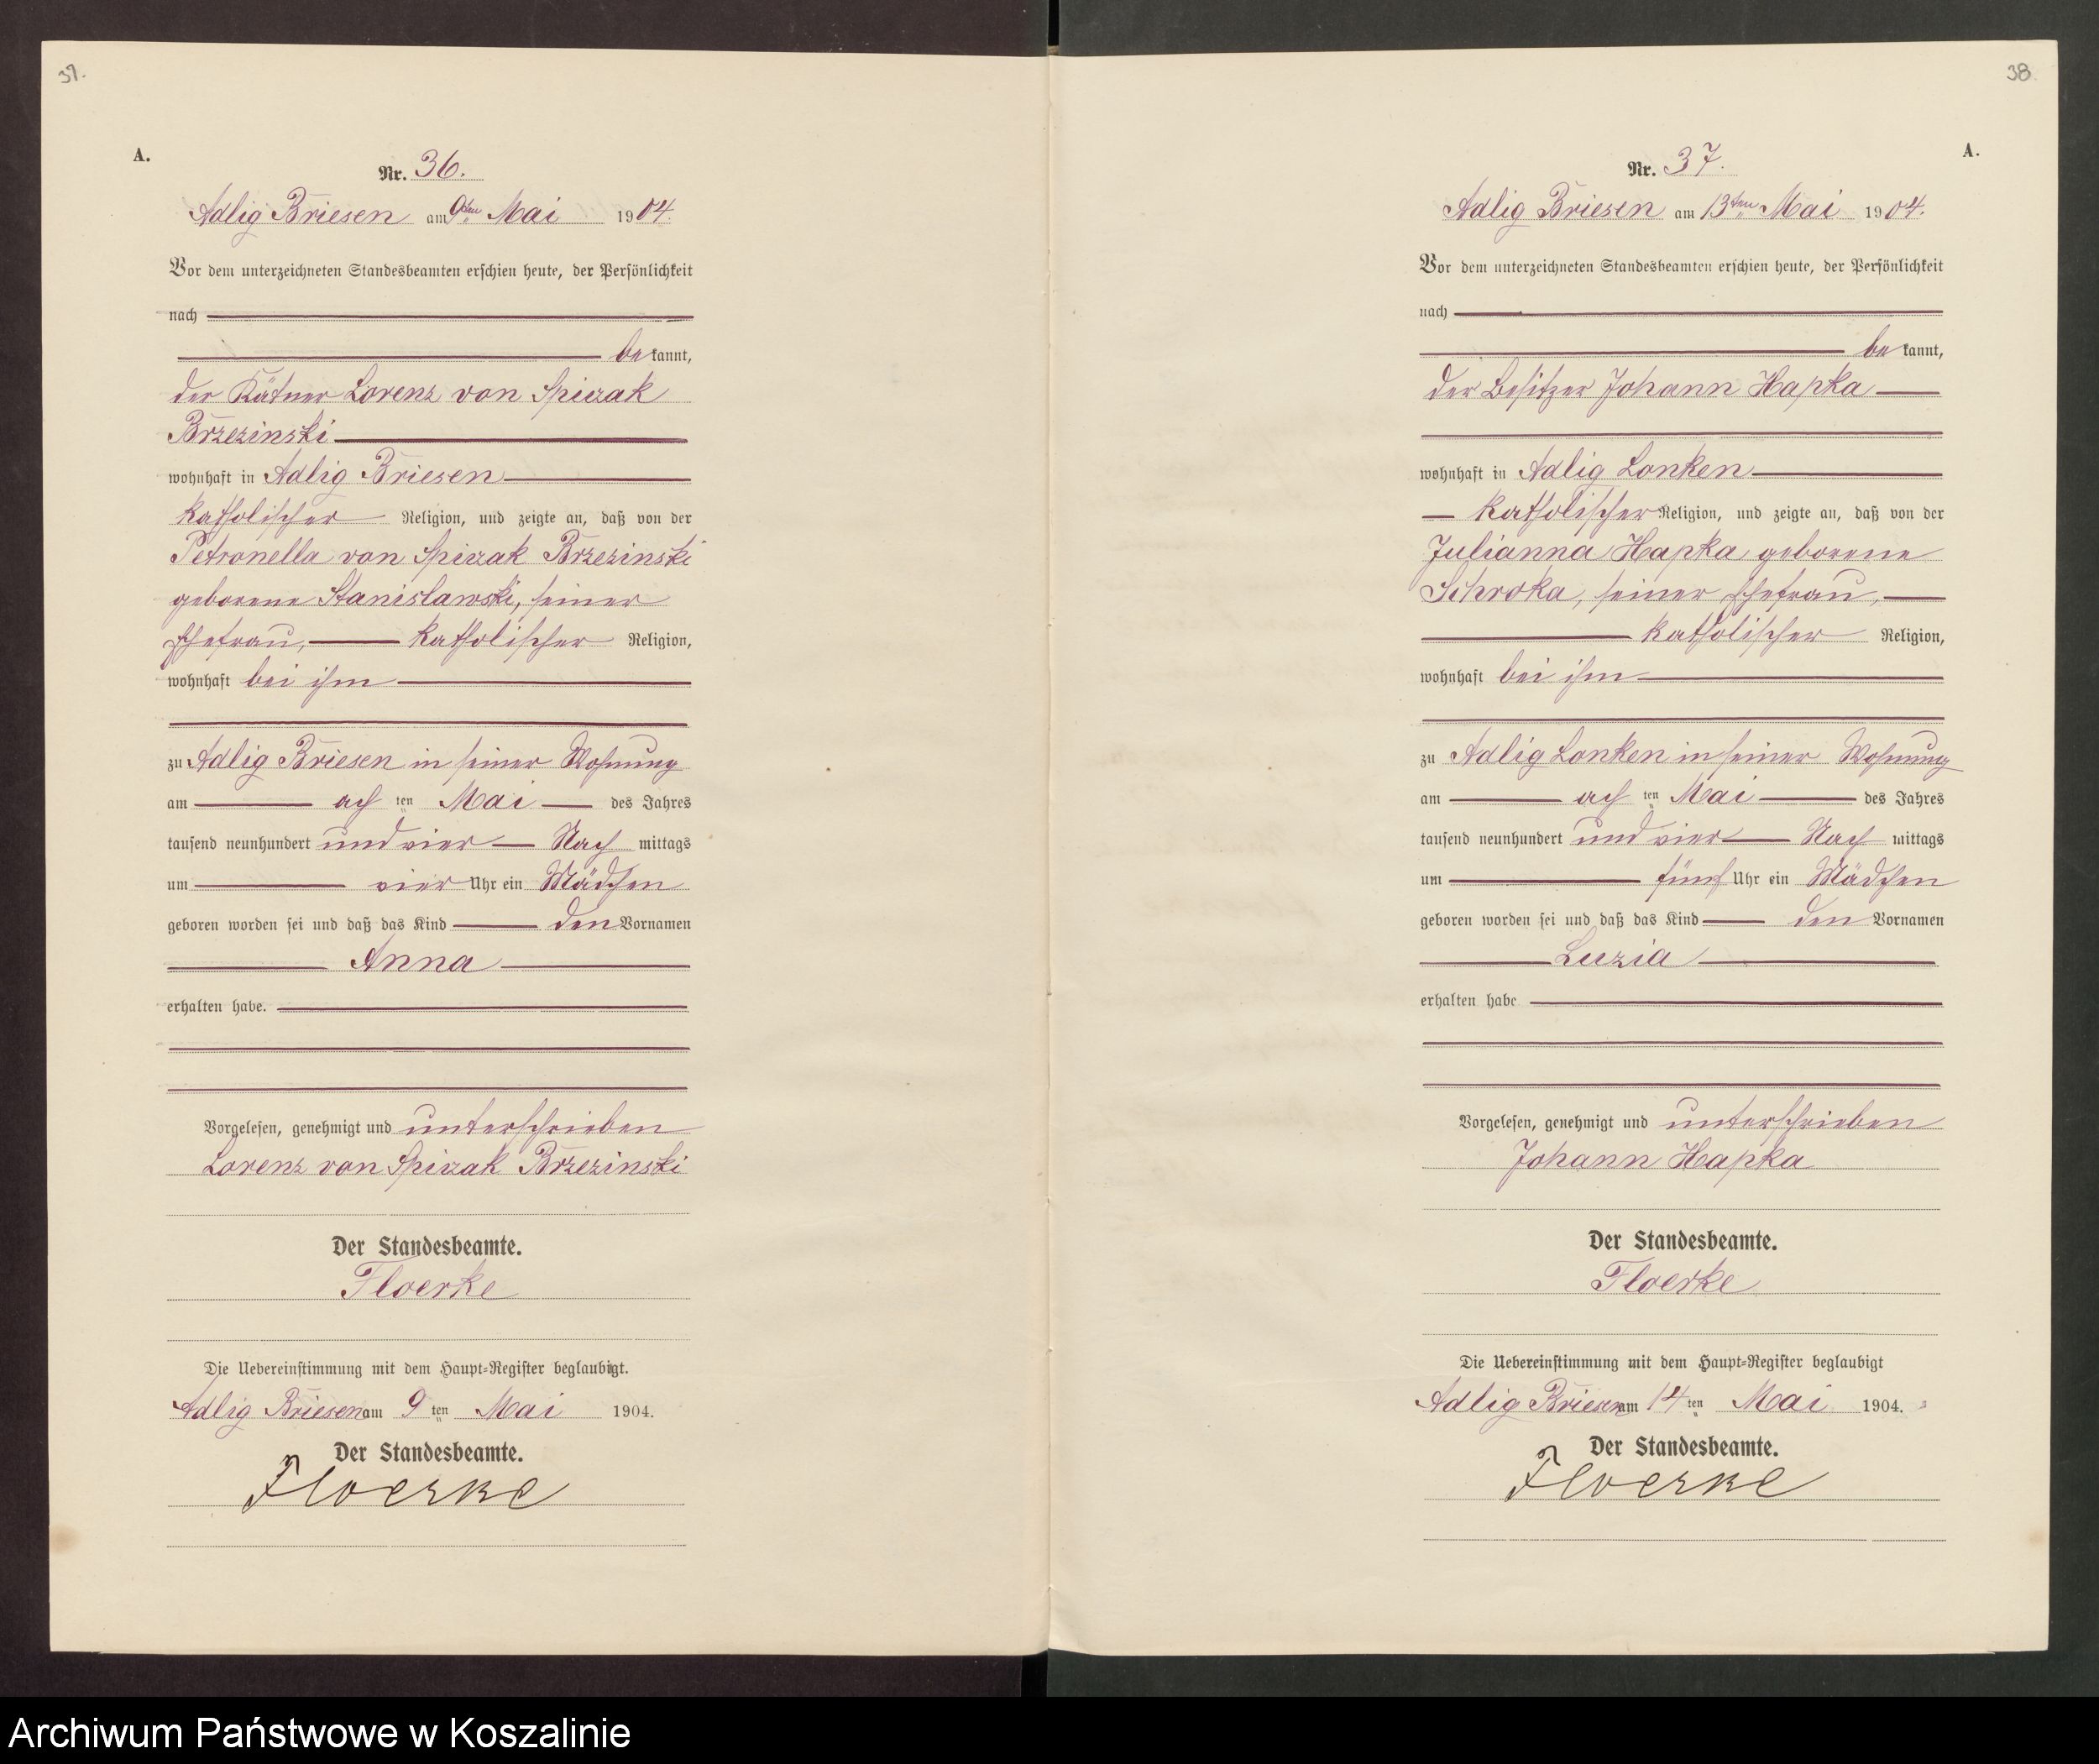 37.
A.
Nr. 36.
Adlig Briesen am 9ten Mai 1904.
Vor dem unterzeichneten Standesbeamten erschien heute, der Persönlichkeit
nach
bekannt,
der Kätner Lorenz von Spiczak
Brzezinski
wohnhaft in Adlig Briesen
katholischer Religion, und zeigte an, daß von der
Petronella von Spiczak Brzezinski
geborene Stanislawski, seiner
Ehefrau, katholischer Religion,
wohnhaft bei ihm
zu Adlig Briesen in seiner Wohnung
am ach ten Mai des Jahres
tausend neunhundert und vier Nach mittags
um vier Uhr ein Mädchen
geboren worden sei und daß das Kind den Vornamen
Anna
erhalten habe.
Vorgelesen, genehmigt und unterschrieben
Lorenz von Spiczak Brzezinski
Der Standesbeamte.
Floerke
Die Uebereinstimmung mit dem Haupt-Register beglaubigt.
Adlig Briesen am 9 ten Mai 1904.
Der Standesbeamte.
Floerke
38
A.
Nr. 37.
Adlig Briesen am 13ten Mai 1904.
Vor dem unterzeichneten Standesbeamten erschien heute, der Persönlichkeit
nach
bekannt,
der Besitzer Johann Hapka
wohnhaft in Adlig Lonken
katholischer Religion, und zeigte an, daß von der
Julianna Hapka geborene
Schroka, seiner Ehefrau,
katholischer Religion,
wohnhaft bei ihm
zu Adlig Lonken in seiner Wohnung
am ach ten Mai des Jahres
tausend neunhundert und vier Nach mittags
um fünf Uhr ein Mädchen
geboren worden sei und daß das Kind den Vornamen
Luzia
erhalten habe
Vorgelesen, genehmigt und unterschrieben
Johann Hapka
Der Standesbeamte.
Floerke
Die Uebereinstimmung mit dem Haupt-Register beglaubigt
Adlig Briesen am 14 ten Mai 1904.
Der Standesbeamte.
Floerke
Archiwum Państwowe w Koszalinie